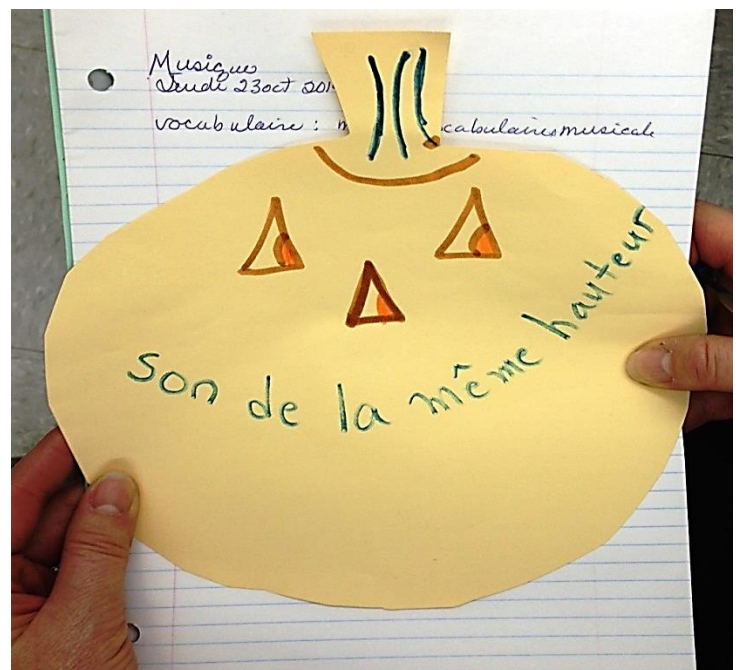 Musique
Jeudi 23 oct
vocabulaire : musicale
son de la même hauteur